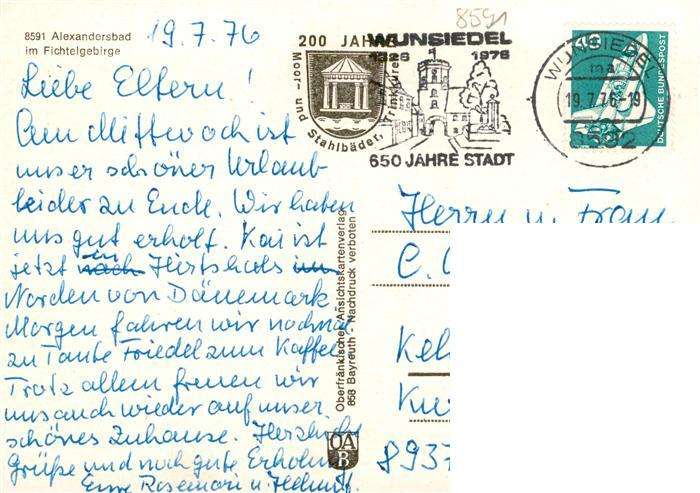 8591 Alexandersbad
im Fichtelgebirge
19.7.76
Liebe Eltern!
Am Mittwoch ist
unser schöner Urlaub
leider zu Ende. Wir haben
uns gut erholt. Kai ist
jetzt in Hirtshals im
Norden von Dänemark
Morgen fahren wir nochmal
zu Tante Friedel zum Kaffee.
Trotz allem freuen wir
uns auch wieder auf unser
schönes Zuhause. Herzliche
Grüße und noch gute Erholung
Eure Rosemari u. Helmut.
8591
200 JAHRE
Moor- und Stahlbäder, Trinkkuren
WUNSIEDEL
1326 1976
650 JAHRE STADT
WUNSIEDEL
ma
19.7.76-19
8592
DEUTSCHE BUNDESPOST
Oberfränkischer Ansichtskartenverlag
858 Bayreuth - Nachdruck verboten
OA
B
Herrn u. Frau
C.
Kel
Ku
8937